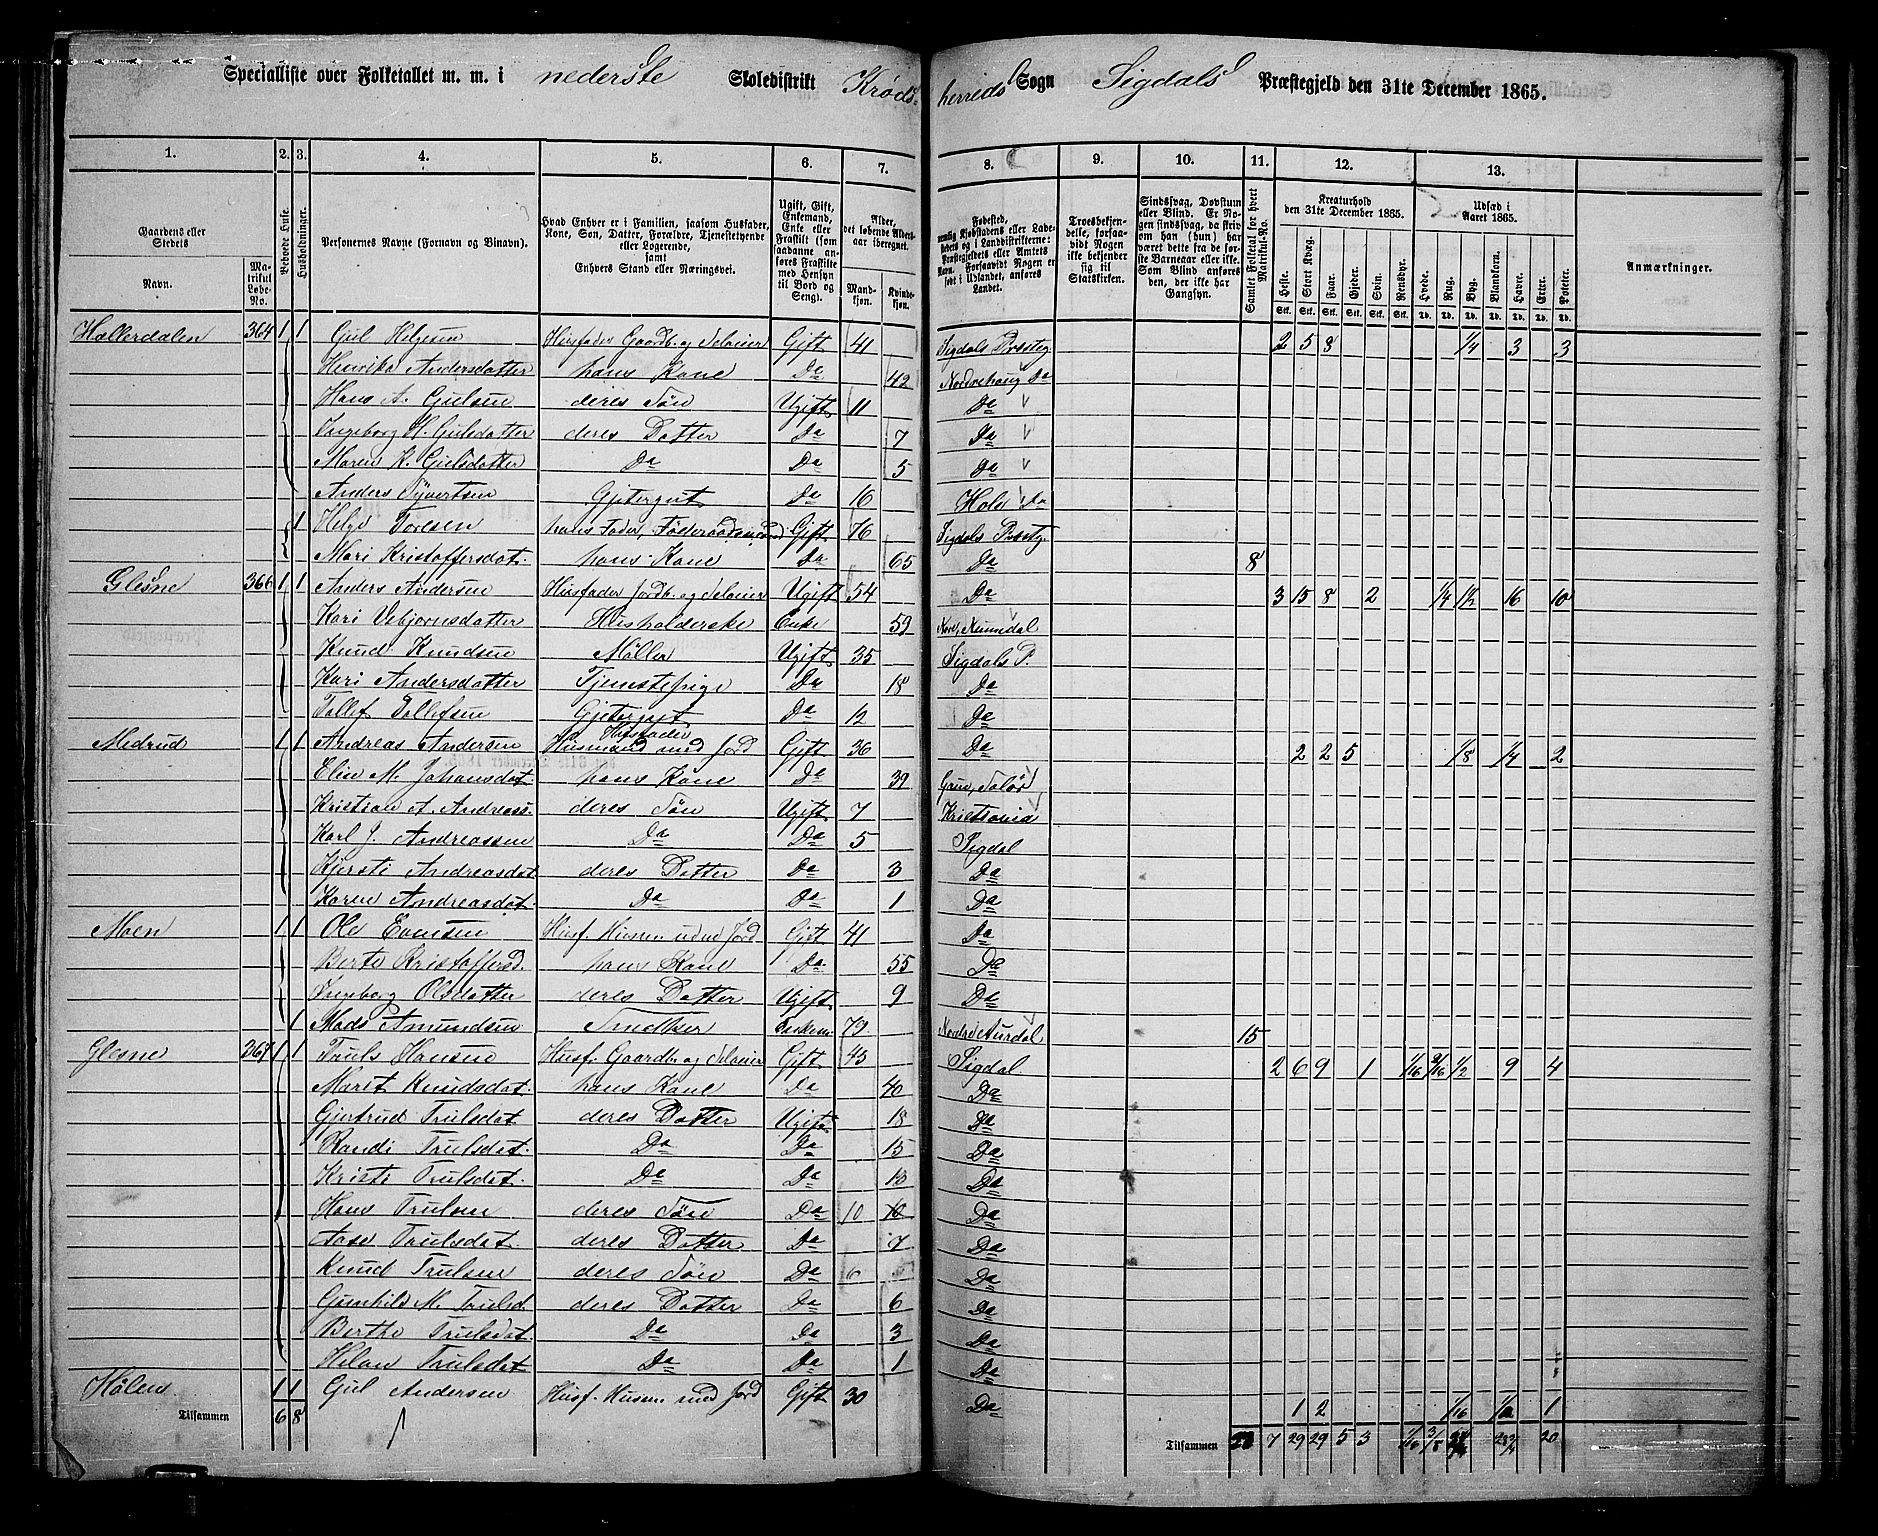 Specialliste over Folketallet m. m. i nederste Skoledistrikt Krøds- herreds Sogn Sigdals Præstegjeld den 31te December 1865.
1. 2. 3. 4. 5. 6. 7. 8. 9. 10. 11. 12. 13.
Gaardens eller Stedets Navn. Matrikul Løbe-No. Beboede Huse. Husholdninger. Personernes Navne (Fornavn og Tilnavn). Hvad Enhver er i Familien, saasom Husfader, Kone, Søn, Datter, Forældre, Tjenestetyende eller Logerende, samt Enhvers Stand eller Næringsvei. Ugift, Gift, Enkemand, Enke eller Fraskilt (som saadanne anføres Fraskilte med Hensyn til Bord og Seng). Alder, det løbende Aldersaar iberegnet. Mandkjøn. Kvindekjøn.
Troesbekjendelse, forsaavidt Nogen ikke bekjender sig til Statskirken. Samlet Folketal for hvert Matrikul-No. Kreaturhold den 31te December 1865. Heste. Stort Kvæg. Faar. Gjeder. Svin. Rensdyr. Udsæd i Aaret 1865. Hvede. Rug. Byg. Blankorn. Havre. Erter. Poteter. Anmærkninger.
Hællerdalen 364 1 1 Gul Helgesen Husfader Gaardb. og Selveier Gift 41 Sigdals Præsteg. 2 5 8 1/4 3 3
Henrika Andersdatter hans Kone Do 42 Nordrehoug Do
Hans A. Gulsen deres Søn Ugift 11 Do
Ingeborg H. Gulsdatter deres Datter Do 7 Do
Maren K. Gulsdatter Do Do 5 Do
Anders Syvertsen Gjetergut Do 16 Hole Do
1 Helge Toresen hans Fader, Føderaadsmand Gift 76 Sigdals Præstg.
Mari Kristoffersdat. hans Kone Do 65 Do 8
Glesne 366 1 1 Anders Andersen Husfader Jordb. og Selveier Ugift 54 Do 3 15 8 2 1/4 1 1/2 16 10
Kari Vebjørnsdatter Husholderske Enke 59 Nore, Numedal
Knud Knudsen Møller Ugift 35 Sigdals P.
Kari Andersdatter Tjenestepige Do 18 Do
Tollef Tollefsen Gjetergut Do 12 Do
Medrud 1 1 Andreas Andersen Husfader Husmand med Jord Gift 36 Do 2 2 5 1/8 1/4 2
Elise M. Johansdat. hans Kone Do 39 Grue, Solør
Kristian A. Andreass. deres Søn Ugift 7 Kristiania
Karl J. Andreassen Do Do 5 Sigdal
Kjersti Andreasdat deres Datter Do 3 Do
Karen Andreasdat. Do Do 1 Do
Moen 1 1 Ole Evensen Husf. Husm. uden Jord Gift 41 Do
Berte Kristoffersd. hans Kone Do 55 Do
Ingeborg Olsdatter deres Datter Ugift 9 Do
1 Mads Amundsen Enkem. 79 Nordre Aurdal 15
Glesne 367 1 1 Truls Hansen Husf. Gaardb. og Selveier Gift 45 Sigdal 2 6 9 1 1/16 3/16 1/2 9 4
Marit Knudsdat. hans Kone Do 40 Do
Gjertrud Trulsdat. deres Datter Ugift 18 Do
Randi Trulsdat. Do Do 15 Do
Kristi Trulsdat. Do Do 13 Do
Hans Trulsen deres Søn Do 10 Do
Aase Trulsdat. deres Datter Do 7 Do
Knud Trulsen deres Søn Do 6 Do
Gunhild M. Trulsd. deres Datter Do 6 Do
Berthe Trulsdat. Do Do 3 Do
Helene Trulsdat Do Do 1 Do
Hølens 1 1 Gul Andersen Husf. Husm. med Jord Gift 30 Do 1 2 1/16 1
Tilsammen 6 8
Tilsammen 23 7 29 29 5 3 1/16 20